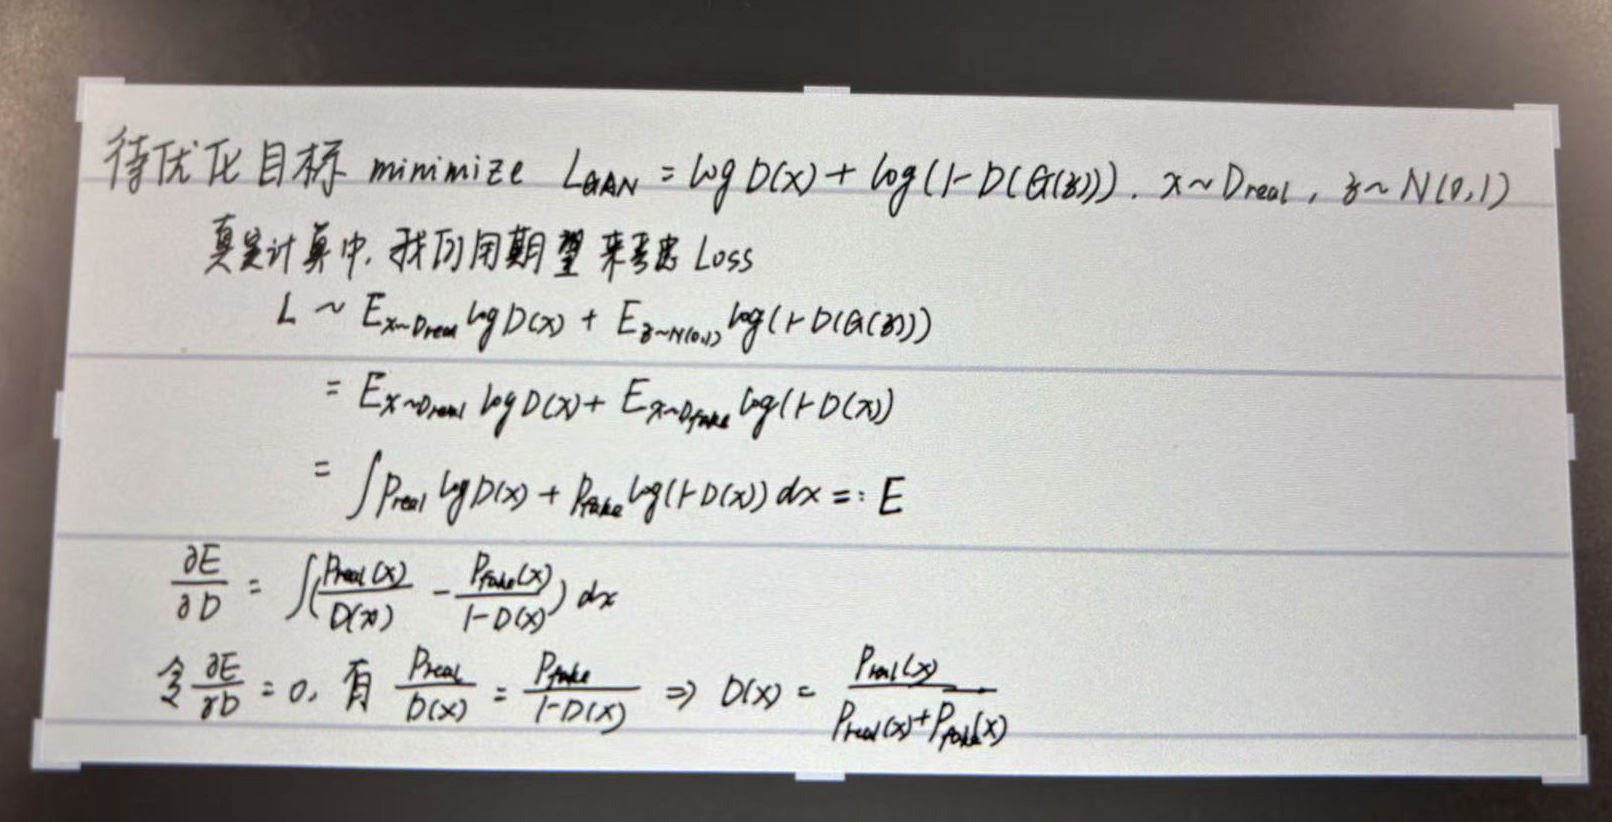 待优化目标 minimize L_GAN = log D(x) + log(1-D(G(z))). x~D_real, z~N(0,1)
真实计算中,我们用期望来考虑 Loss
L ~ E_{x~D_real} log D(x) + E_{z~N(0,1)} log(1-D(G(z)))
= E_{x~D_real} log D(x) + E_{x~D_fake} log(1-D(x))
= ∫ P_real log D(x) + P_fake log(1-D(x)) dx =: E
∂E/∂D = ∫(P_real(x)/D(x) - P_fake(x)/(1-D(x))) dx
令 ∂E/∂D = 0, 有 P_real/D(x) = P_fake/(1-D(x)) ⇒ D(x) = P_real(x)/(P_real(x)+P_fake(x))